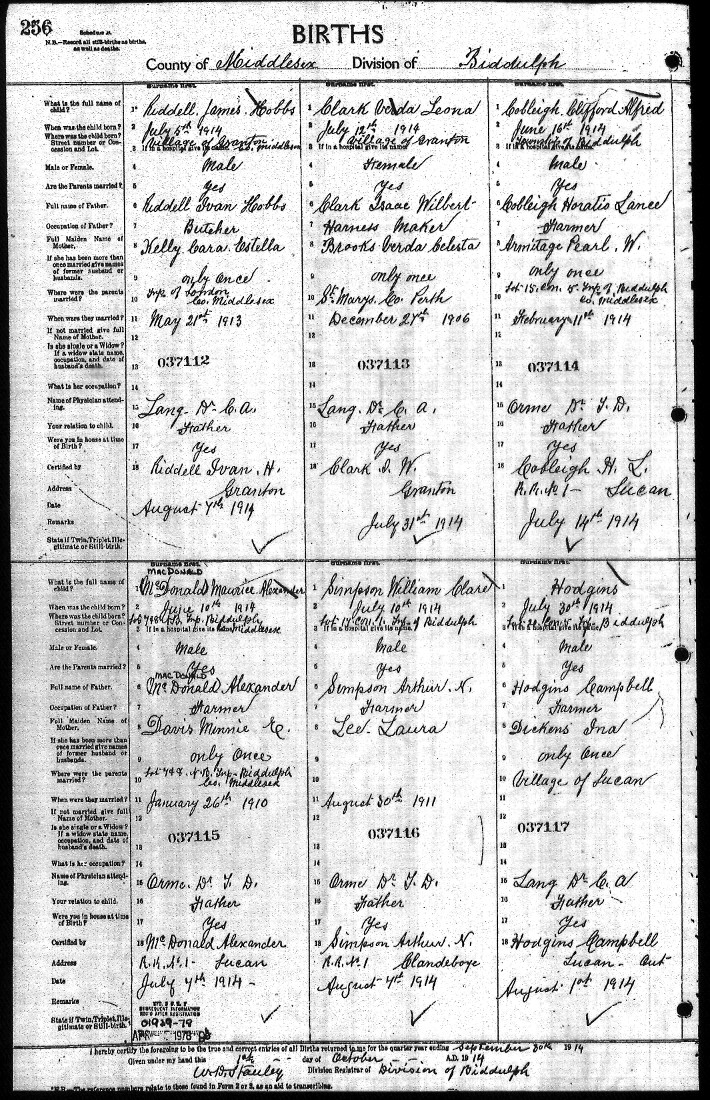 256
Schedule A.
N.B.—Record all still-births as births, as well as deaths.
BIRTHS
County of Middlesex Division of Biddulph
Surname first. Surname first. Surname first.
What is the full name of child? 1 Riddell, James, Hobbs 1 Clark Verda Leona 1 Cobleigh, Clifford Alfred
When was the child born? 2 July 5th 1914 2 July 12th 1914 2 June 16th 1914
Where was the child born? Street number or Concession and Lot. 3 If in a hospital give its name Village of Granton Middlesex 3 If in a hospital give its name Village of Granton 3 If in a hospital give its name Township of Biddulph
Male or Female. 4 Male 4 Female 4 Male
Are the Parents married? 5 Yes 5 Yes 5 Yes
Full name of Father. 6 Riddell Ivan Hobbs 6 Clark Isaac Wilbert 6 Cobleigh Horatio Lance
Occupation of Father? 7 Butcher 7 Harness Maker 7 Farmer
Full Maiden Name of Mother. 8 Kelly Cara Estella 8 Brooks Verda Celesta 8 Armitage Pearl, W.
If she has been more than once married give names of former husband or husbands. 9 only Once 9 only once 9 only once
Where were the parents married? 10 Twp. of London Co. Middlesex 10 St. Marys. Co Perth 10 Lot 15. Con. 5. Twp. of Biddulph Co. Middlesex
When were they married? 11 May 21st 1913 11 December 27th 1906 11 February 11th 1914
If not married give full Name of Mother. 12 12 12
Is she single or a Widow? If a widow state name, occupation, and date of husband's death. 13 037112 13 037113 13 037114
What is her occupation? 14 14 14
Name of Physician attending. 15 Lang. Dr C. A. 15 Lang. Dr C. A. 15 Orme Dr T. D.
Your relation to child. 16 Father 16 Father 16 Father
Were you in house at time of Birth? 17 Yes 17 Yes 17 Yes
Certified by 18 Riddell Ivan. H. 18 Clark I. W. 18 Cobleigh H. L.
Address Granton Granton R.R. No 1 - Lucan
Date August 7th 1914 July 31st 1914 July 14th 1914
Remarks
State if Twin, Triplet, Illegitimate or Still-birth.
Surname first. Surname first. Surname first.
MACDONALD
What is the full name of child? 1 McDonald Maurice Alexander 1 Simpson William Clare 1 Hodgins
When was the child born? 2 June 10th 1914 2 July 10th 1914 2 July 30th 1914
Where was the child born? Street number or Concession and Lot. 3 If in a hospital give its name Twp. Biddulph Middlesex 3 If in a hospital give its name Twp. of Biddulph 3 If in a hospital give its name Twp. Biddulph
Male or Female. 4 Male 4 Male 4 Male
Are the Parents married? 5 Yes 5 Yes 5 Yes
MACDONALD
Full name of Father. 6 McDonald Alexander 6 Simpson Arthur. N. 6 Hodgins Campbell
Occupation of Father? 7 Farmer 7 Farmer 7 Farmer
Full Maiden Name of Mother. 8 Davis Minnie E. 8 Lee Laura 8 Dickens Ina
If she has been more than once married give names of former husband or husbands. 9 only Once 9 9 only Once
Where were the parents married? 10 Twp. Biddulph Co. Middlesex 10 10 Village of Lucan
When were they married? 11 January 26th 1910 11 August 30th 1911 11
If not married give full Name of Mother. 12 12 12
Is she single or a Widow? If a widow state name, occupation, and date of husband's death. 13 037115 13 037116 13 037117
What is her occupation? 14 14 14
Name of Physician attending. 15 Orme. Dr T. D. 15 Orme Dr T. D. 15 Lang Dr C. A
Your relation to child. 16 Father 16 Father 16 Father
Were you in house at time of Birth? 17 Yes 17 Yes 17 Yes
Certified by 18 McDonald Alexander 18 Simpson Arthur. N. 18 Hodgins Campbell
Address R.R. No. 1 - Lucan R.R. No. 1 Clandeboye Lucan - Ont
Date July 7th 1914 - August 4th 1914 August 1st 1914
Remarks
State if Twin, Triplet, Illegitimate or Still-birth. SUBSEQUENT INFORMATION
01929-78
APR 1978
I hereby certify the foregoing to be the true and correct entries of all Births returned to me for the quarter year ending September 30th 1914
Given under my hand this 1st day of October A.D. 1914
W. D. Stanley Division Registrar of Division of Biddulph
N.B.—The reference numbers relate to those found in Form 2 or 3, as an aid to transcribing.